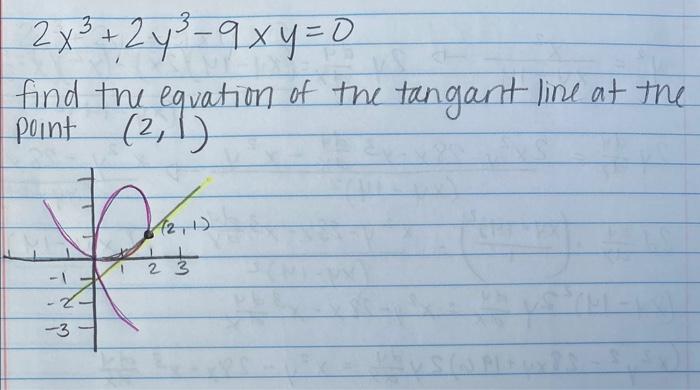 2x³+2y³-9xy=0
find the equation of the tangant line at the
point (2,1)
(2,1)
1 2 3
-1
-2
-3